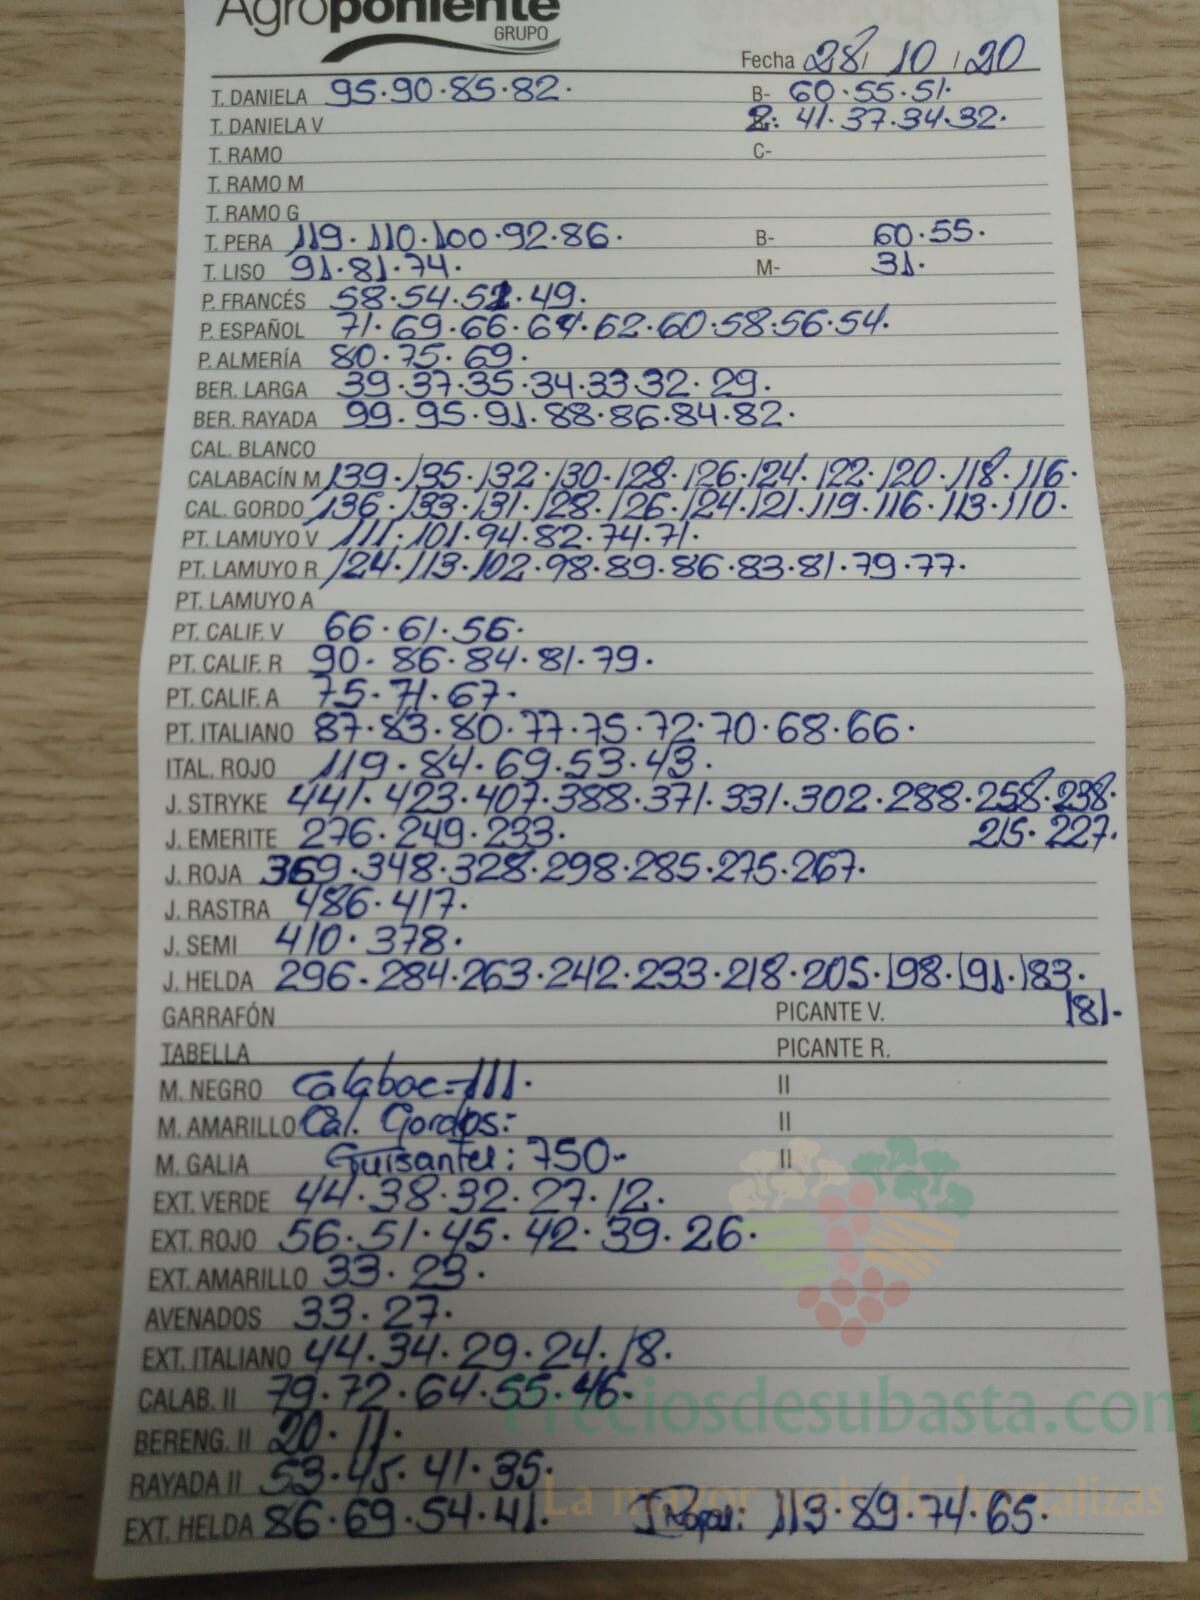 Agroponiente
GRUPO
Fecha 28/ 10 / 20
T. DANIELA 95.90.85.82. B- 60.55.51.
T. DANIELA V 2: 41.37.34.32.
T. RAMO C-
T. RAMO M
T. RAMO G
T. PERA 119.110.100.92.86. B- 60.55.
T. LISO 91.81.74. M- 31.
P. FRANCÉS 58.54.52.49.
P. ESPAÑOL 71.69.66.64.62.60.58.56.54.
P. ALMERÍA 80.75.69.
BER. LARGA 39.37.35.34.33.32.29.
BER. RAYADA 99.95.91.88.86.84.82.
CAL. BLANCO
CALABACÍN M 139.135.132.130.128.126.124.122.120.118.116.
CAL. GORDO 136.133.131.128.126.124.121.119.116.113.110.
PT. LAMUYO V 111.101.94.82.74.71.
PT. LAMUYO R 124.113.102.98.89.86.83.81.79.77.
PT. LAMUYO A
PT. CALIF. V 66.61.56.
PT. CALIF. R 90.86.84.81.79.
PT. CALIF. A 75.71.67.
PT. ITALIANO 87.83.80.77.75.72.70.68.66.
ITAL. ROJO 119.84.69.53.43.
J. STRYKE 441.423.407.388.371.331.302.288.258.238.
J. EMERITE 276.249.233. 215.227.
J. ROJA 369.348.328.298.285.275.267.
J. RASTRA 486.417.
J. SEMI 410.378.
J. HELDA 296.284.263.242.233.218.205.198.191.183.
GARRAFÓN PICANTE V. 181.
TABELLA PICANTE R.
M. NEGRO Calabac-111. II
M. AMARILLO Cal. Gordos: II
M. GALIA Guisantes: 750.. II
EXT. VERDE 44.38.32.27.12.
EXT. ROJO 56.51.45.42.39.26.
EXT. AMARILLO 33.23.
AVENADOS 33.27.
EXT. ITALIANO 44.34.29.24.18.
CALAB. II 79.72.64.55.46.
Preciosdesubasta.com
BERENG. II 20.11.
RAYADA II 53.45.41.35.
La mayor web de hortalizas
EXT. HELDA 86.69.54.41. 113.89.74.65.